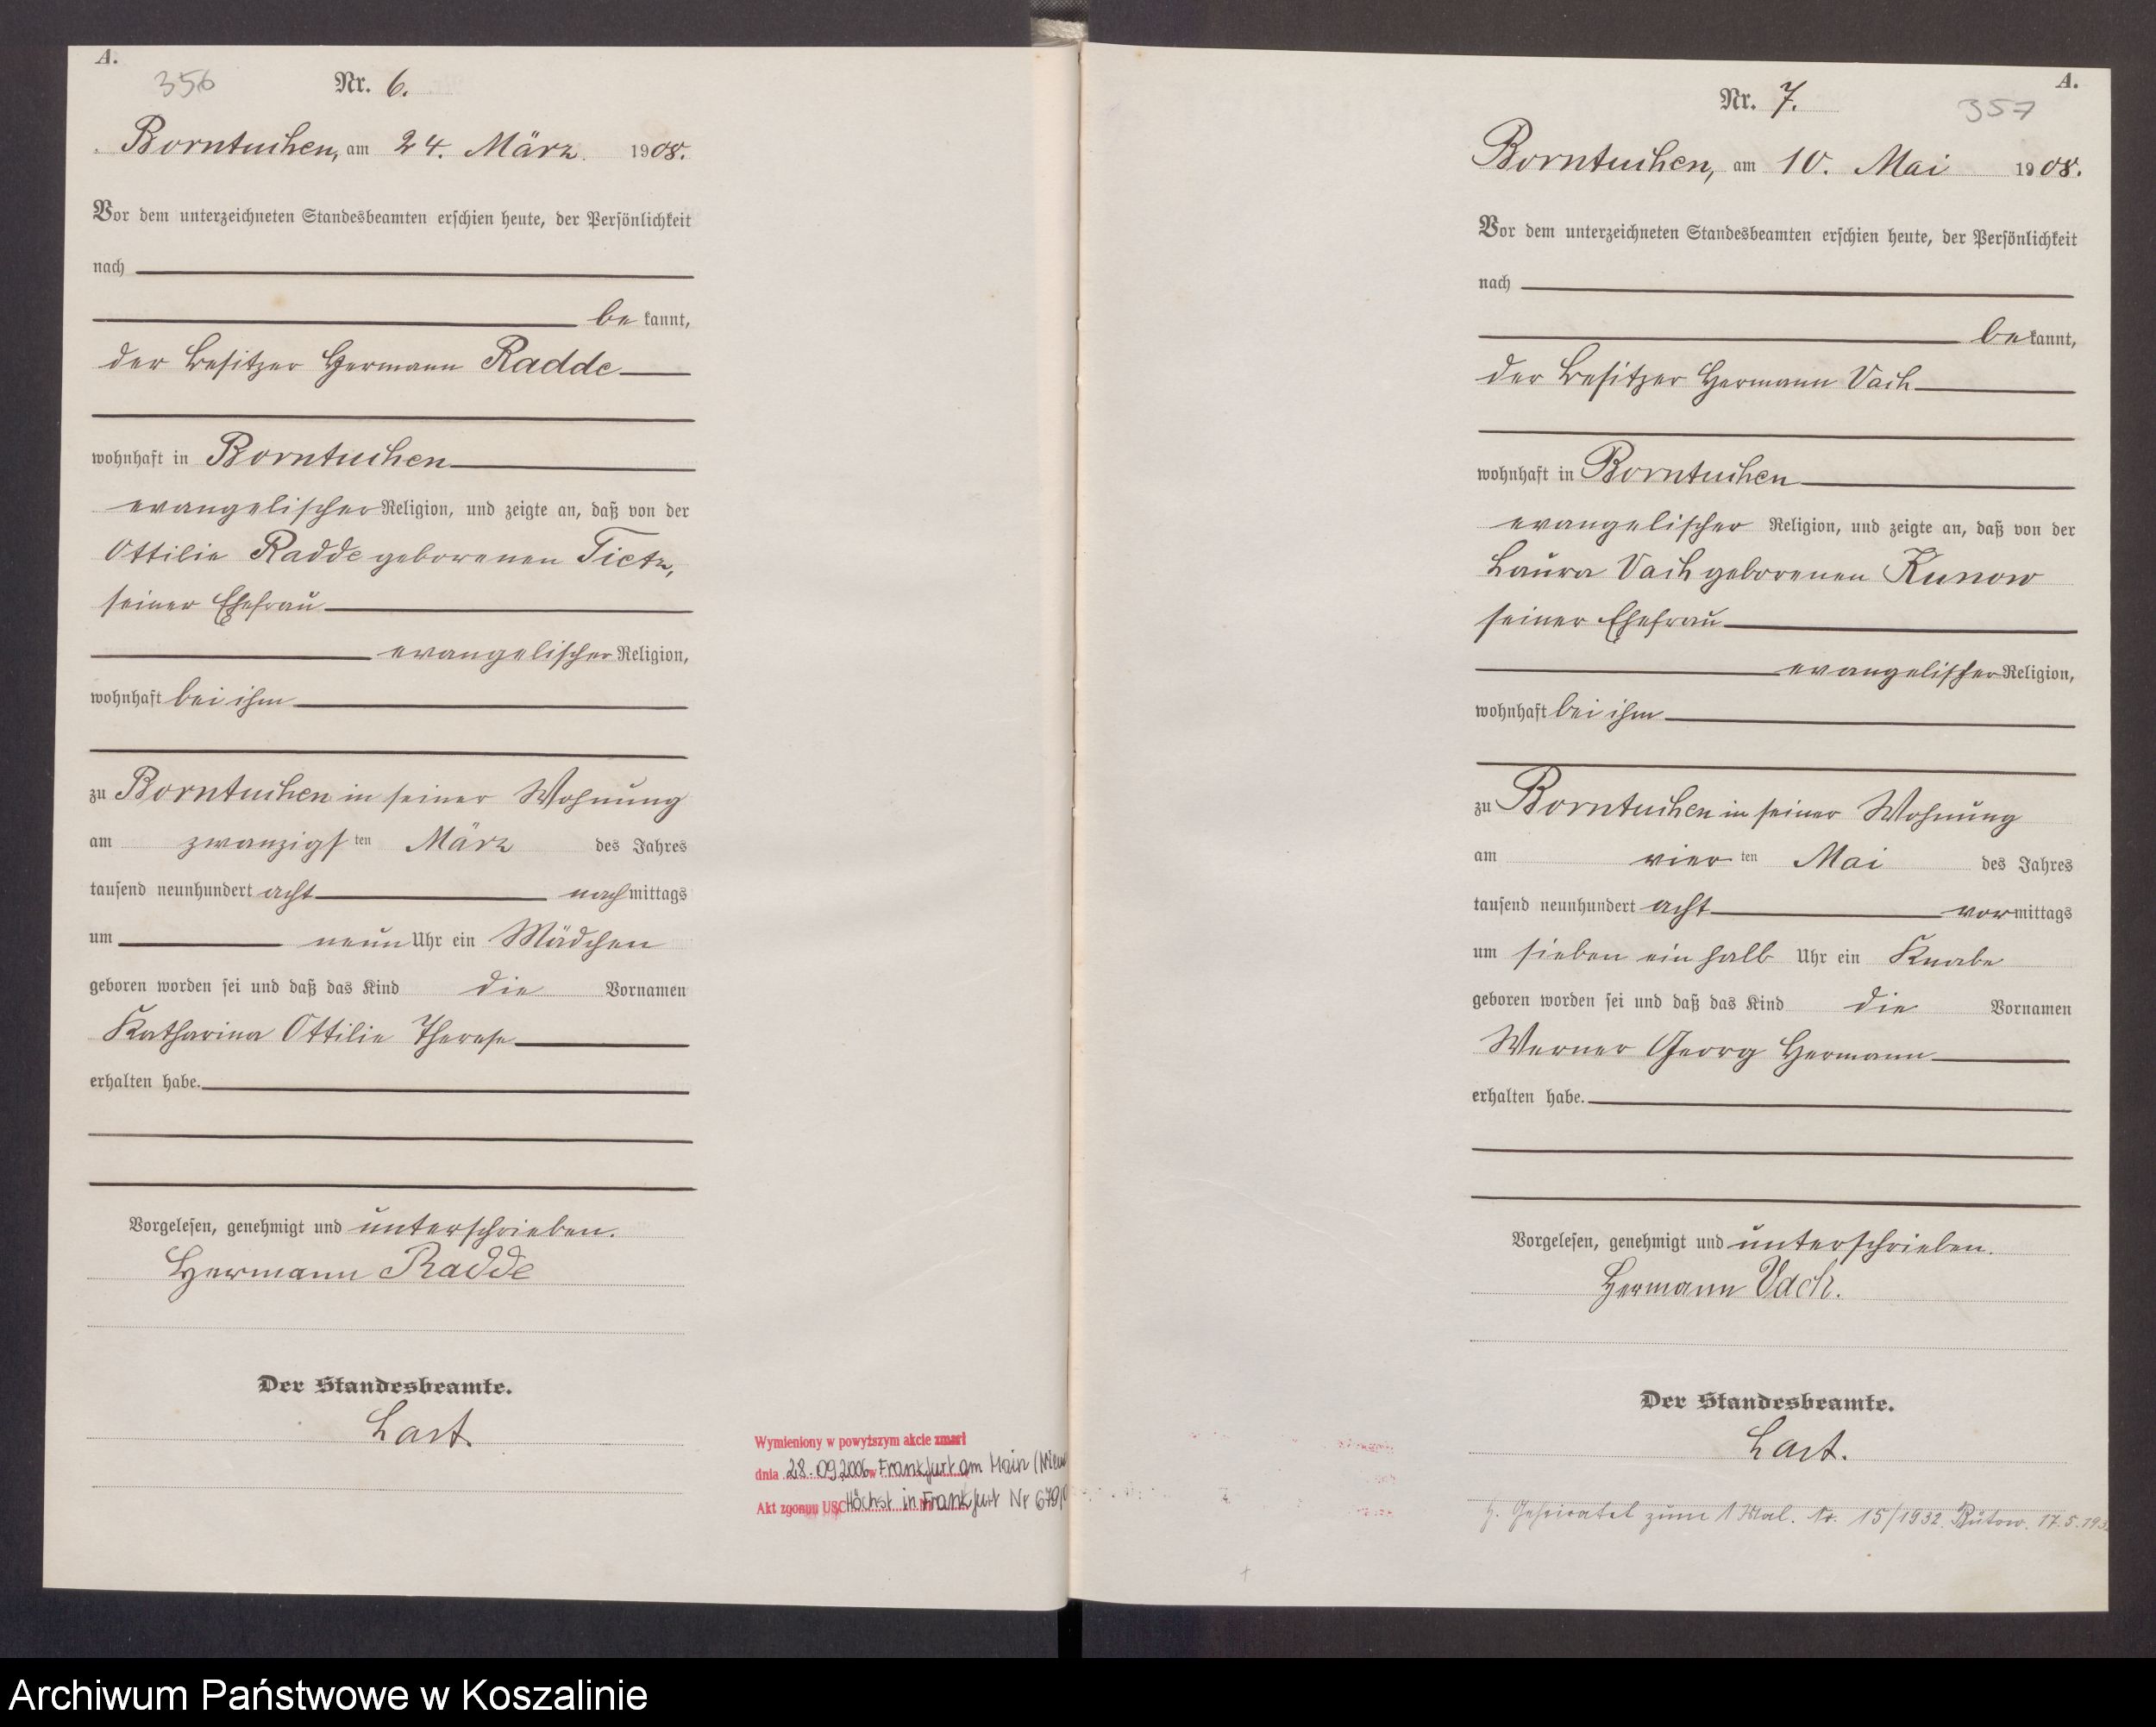 A.
356
Nr. 6.
Borntuchen, am 24. März 1908.
Vor dem unterzeichneten Standesbeamten erschien heute, der Persönlichkeit
nach
be kannt,
der Besitzer Hermann Radde
wohnhaft in Borntuchen
evangelischer Religion, und zeigte an, daß von der
Ottilie Radde geborenen Tietz,
seiner Ehefrau
evangelischer Religion,
wohnhaft bei ihm
zu Borntuchen in seiner Wohnung
am zwanzigsten März des Jahres
tausend neunhundert acht nachmittags
um neun Uhr ein Mädchen
geboren worden sei und daß das Kind die Vornamen
Katharina Ottilie Therese
erhalten habe.
Vorgelesen, genehmigt und unterschrieben.
Hermann Radde
Der Standesbeamte.
Last.
Wymieniony w powyższym akcie zmarł
dnia 28.09.2006 w Frankfurt am Main
Akt zgonu USC Höchst in Frankfurt Nr
A.
357
Nr. 7.
Borntuchen, am 10. Mai 1908.
Vor dem unterzeichneten Standesbeamten erschien heute, der Persönlichkeit
nach
be kannt,
der Besitzer Hermann Vach
wohnhaft in Borntuchen
evangelischer Religion, und zeigte an, daß von der
Laura Vach geborenen Kunow
seiner Ehefrau
evangelischer Religion,
wohnhaft bei ihm
zu Borntuchen in seiner Wohnung
am vierten Mai des Jahres
tausend neunhundert acht vormittags
um sieben ein halb Uhr ein Knabe
geboren worden sei und daß das Kind die Vornamen
Werner Georg Hermann
erhalten habe.
Vorgelesen, genehmigt und unterschrieben.
Hermann Vach.
Der Standesbeamte.
Last.
Geheiratet zum 1 Mal. Nr. 15/1932 Bütow. 17.5.
Archiwum Państwowe w Koszalinie